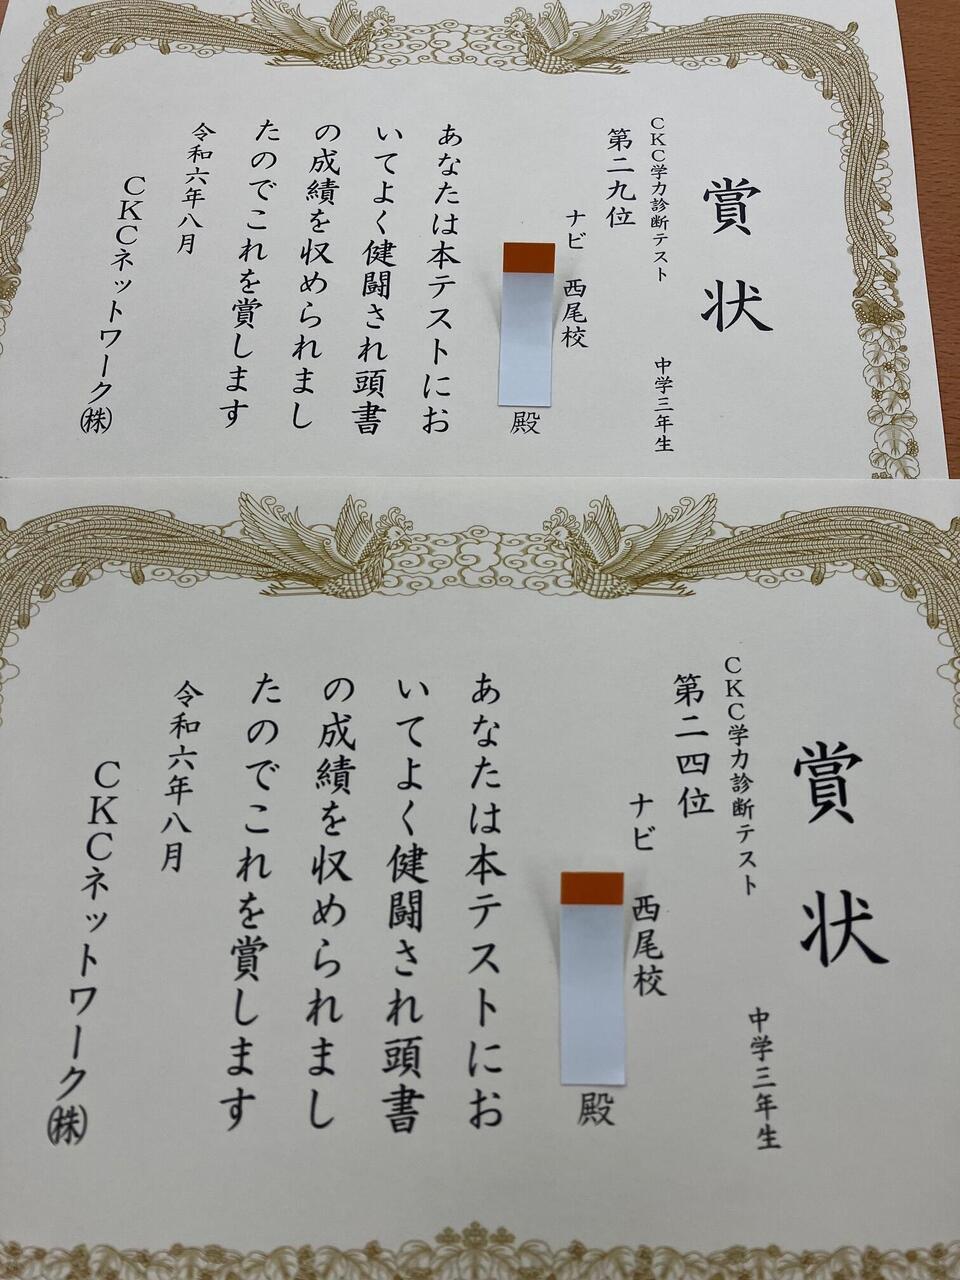 賞状
CKC学力診断テスト 中学三年生
第二九位
ナビ 西尾校
殿
あなたは本テストにお
いてよく健闘され頭書
の成績を収められまし
たのでこれを賞します
令和六年八月
CKCネットワーク㈱
賞状
CKC学力診断テスト 中学三年生
第二四位
ナビ 西尾校
殿
あなたは本テストにお
いてよく健闘され頭書
の成績を収められまし
たのでこれを賞します
令和六年八月
CKCネットワーク㈱